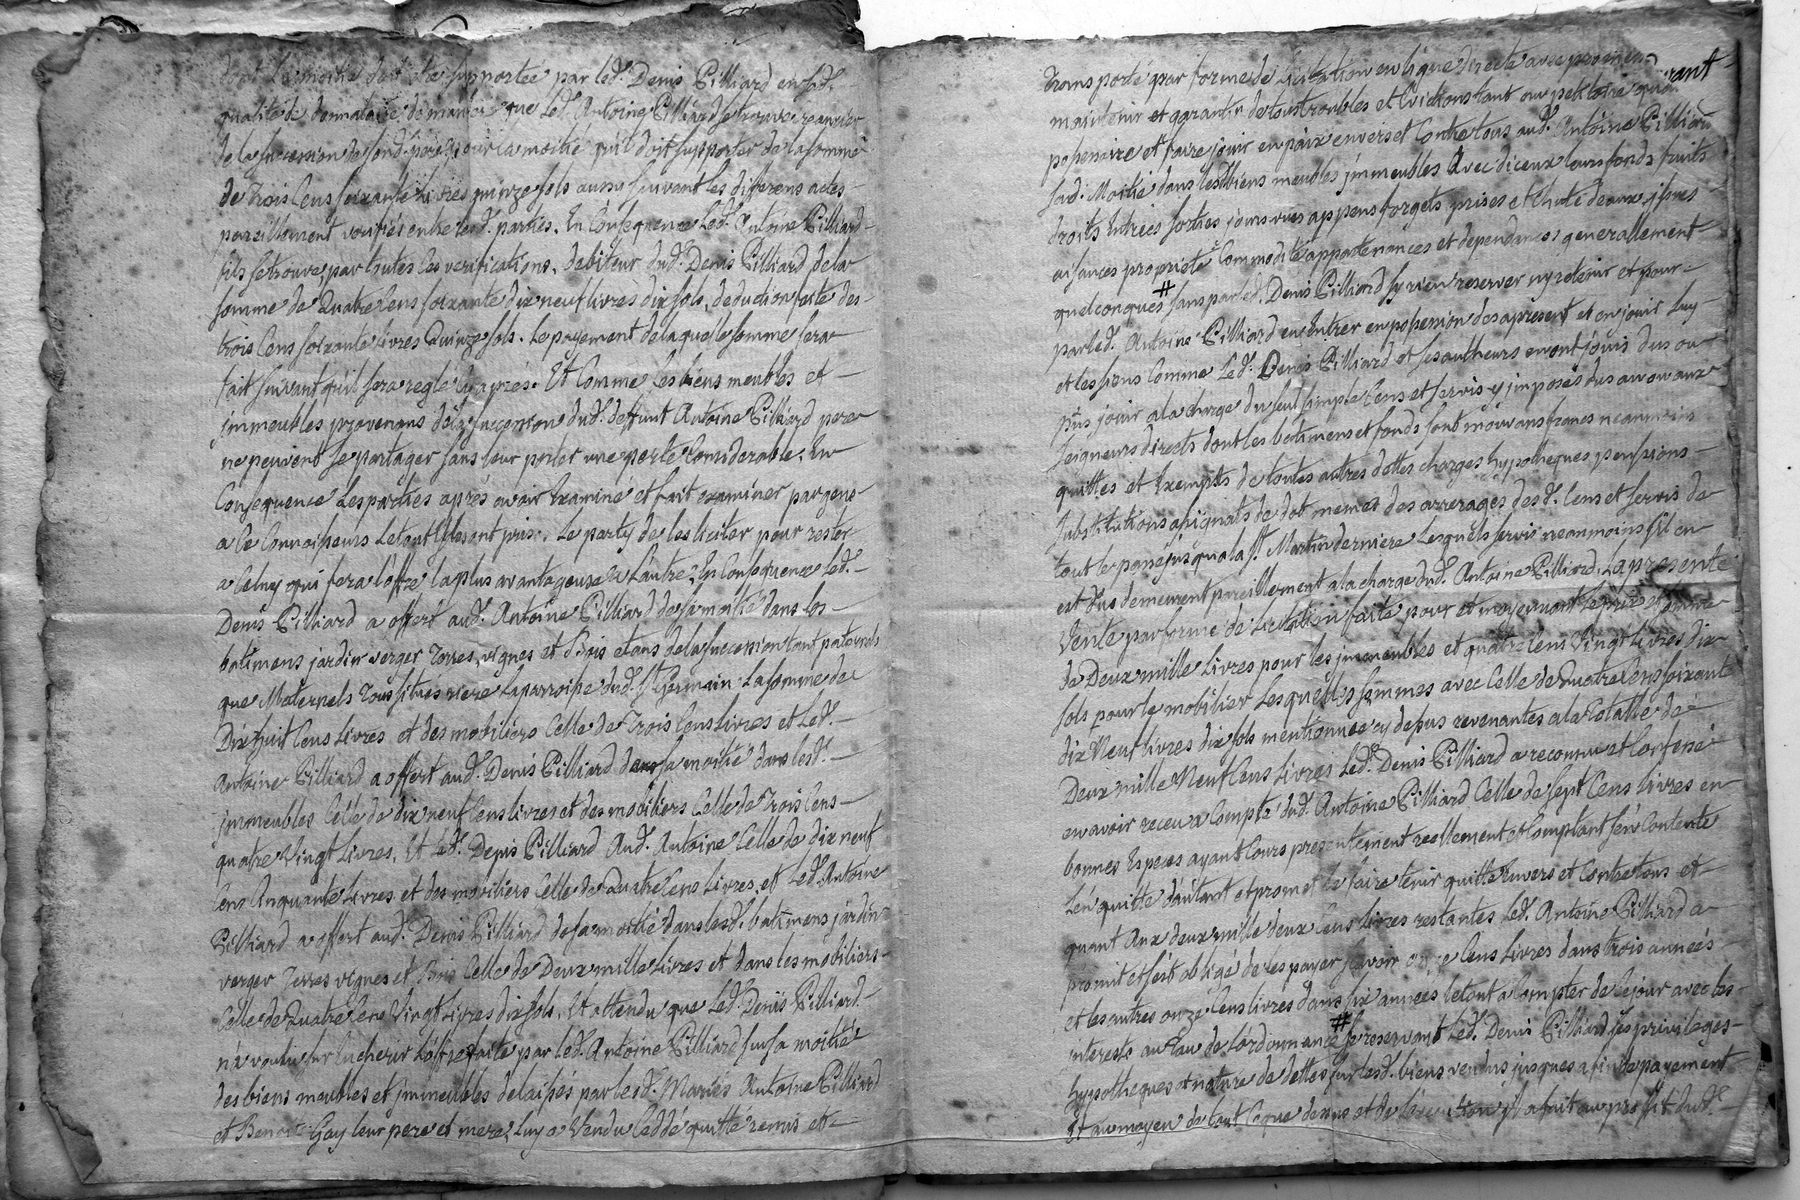 doit la moitié doit etre supportée par led. Denis Pilliard en sad.
qualité de donnataire de maniere que led. Antoine Pilliard se trouve
de la succession de sond. pere pour la moitié qu'il doit supporter de la somme
de Trois Cens soixante Livres quinze sols aussy suivant les differens actes
pareillement verifiés entre lesd. parties. En Consequence Led. Antoine Pilliard
fils se trouve, par toutes les verifications, debiteur dud. Denis Pilliard de la
somme de Quatre Cens soixante dix neuf livres dix sols, deduction faite des
trois Cens soixante livres Quinze sols. Le payement de laquelle somme sera
fait suivant qu'il sera reglé cy apres. Et Comme les biens meubles et
jmmeubles provenans de la succession dud. deffunt Antoine Pilliard pere
ne peuvent se partager sans leur porter une perte Considerable, En
Consequence Les parties aprés avoir Examiné et fait examiner par gens
a ce Connoisseurs Le tout Elles ont pris Le party de les liciter pour rester
a Celuy qui fera l'offre la plus avantageuse a L'autre, En Consequence Led.
Denis Pilliard a offert aud. Antoine Pilliard de sa moitié dans les
batimens jardin verger Terres, vignes et Bois etans de la succession tant paternels
que Maternels Tous situés riere La parroisse dud. St Germain La somme de
Dix huit Cens Livres et des mobiliers Celle de Trois Cens Livres et Led.
Antoine Pilliard a offert aud. Denis Pilliard de sa moitié dans lesd.
jmmeubles Celle de dix neuf Cens livres et des mobiliers Celle de Trois Cens
quatre Vingt Livres, Et Led. Denis Pilliard Aud. Antoine Celle de dix neuf
Cens Cinquante Livres et des mobiliers Celle de Quatre Cens Livres, et Led. Antoine
Pilliard a offert aud. Denis Pilliard de sa moitié dans lesd. batimens jardin
verger Terres vignes et Bois Celle de Deux mille Livres et dans les mobiliers
Celle de Quatre Cens Vingt Livres dix sols, Et attendu que Led. Denis Pilliard
n'a voulu surencherir L'offre faite par led. Antoine Pilliard sur sa moitié
des biens meubles et jmmeubles delaissés par lesd. Mariés Antoine Pilliard
et Benoite Gay leur pere et mere, Luy a Vendu Ceddé quitté remis et
Transporté par forme de licitation en ligne directe avec promesse de garant
maintenir et garantir de tous troubles et Evictions tant au petitoire que
possessoire et faire jouir en paix envers et Contre tous aud. Antoine Pilliard
sad. Moitié dans lesd. biens meubles jmmeubles Avec d'iceux leurs fonds fruits
droits Entrées sorties jours vües appens forgets prises et Chute deaux
aisances proprieté Commodité appartenances et dependances generallement
quelconques # sans par led. Denis Pilliard s'y rien reserver ny retenir et pour
par led. Antoine Pilliard en Entrer en possession des apresent et en jouir Luy
et les siens Comme Led. Denis Pilliard et ses autheurs en ont jouis dus ou
pûs jouir a la charge du seul simple Cens et servis y imposés dus au ou aux
seigneurs directs dont les batimens et fonds sont mouvans francs neanmoins
quittes et Exempts de toutes autres dettes charges hypotheques pensions
substitutions assignats de dot memes des arrerages desd. Cens et servis de
tout le passé jusqua la St Martin derniere Lesquels servis neanmoins s'il en
est dus demeurent pareillement a la charge dud. Antoine Pilliard. La presente
Vente par forme de Licitation faite pour et moyennant le prix et somme
de Deux mille Livres pour les jmmeubles et quatre Cens Vingt Livres dix
sols pour le mobilier Lesquelles sommes avec Celle de Quatre Cens soixante
dix Neuf livres dix sols mentionnée cy dessus revenantes a la totalle de
Deux mille Neuf Cens Livres Led. Denis Pilliard a reconnu et Confessé
en avoir receu a Compte dud. Antoine Pilliard Celle de sept Cens Livres en
bonnes Especes ayant Cours presentement reellement et Comptant s'en Contente
L'en quitte d'autant et promet le faire tenir quitte envers et Contre tous et
quant Aux deux mille deux Cens Livres restantes Led. Antoine Pilliard a
promit et s'est obligé de les payer sçavoir onze Cens Livres dans trois années
et les autres onze Cens livres dans six années le tout a Compter de ce jour avec les
interests au Taux de l'ordonnance # se reservant Led. Denis Pilliard ses privileges
hypotheques et nature de dettes sur lesd. biens vendus jusques a fin de payement
Et au moyen de tout Ceque dessus et de l'execution il a fait au profit dud.